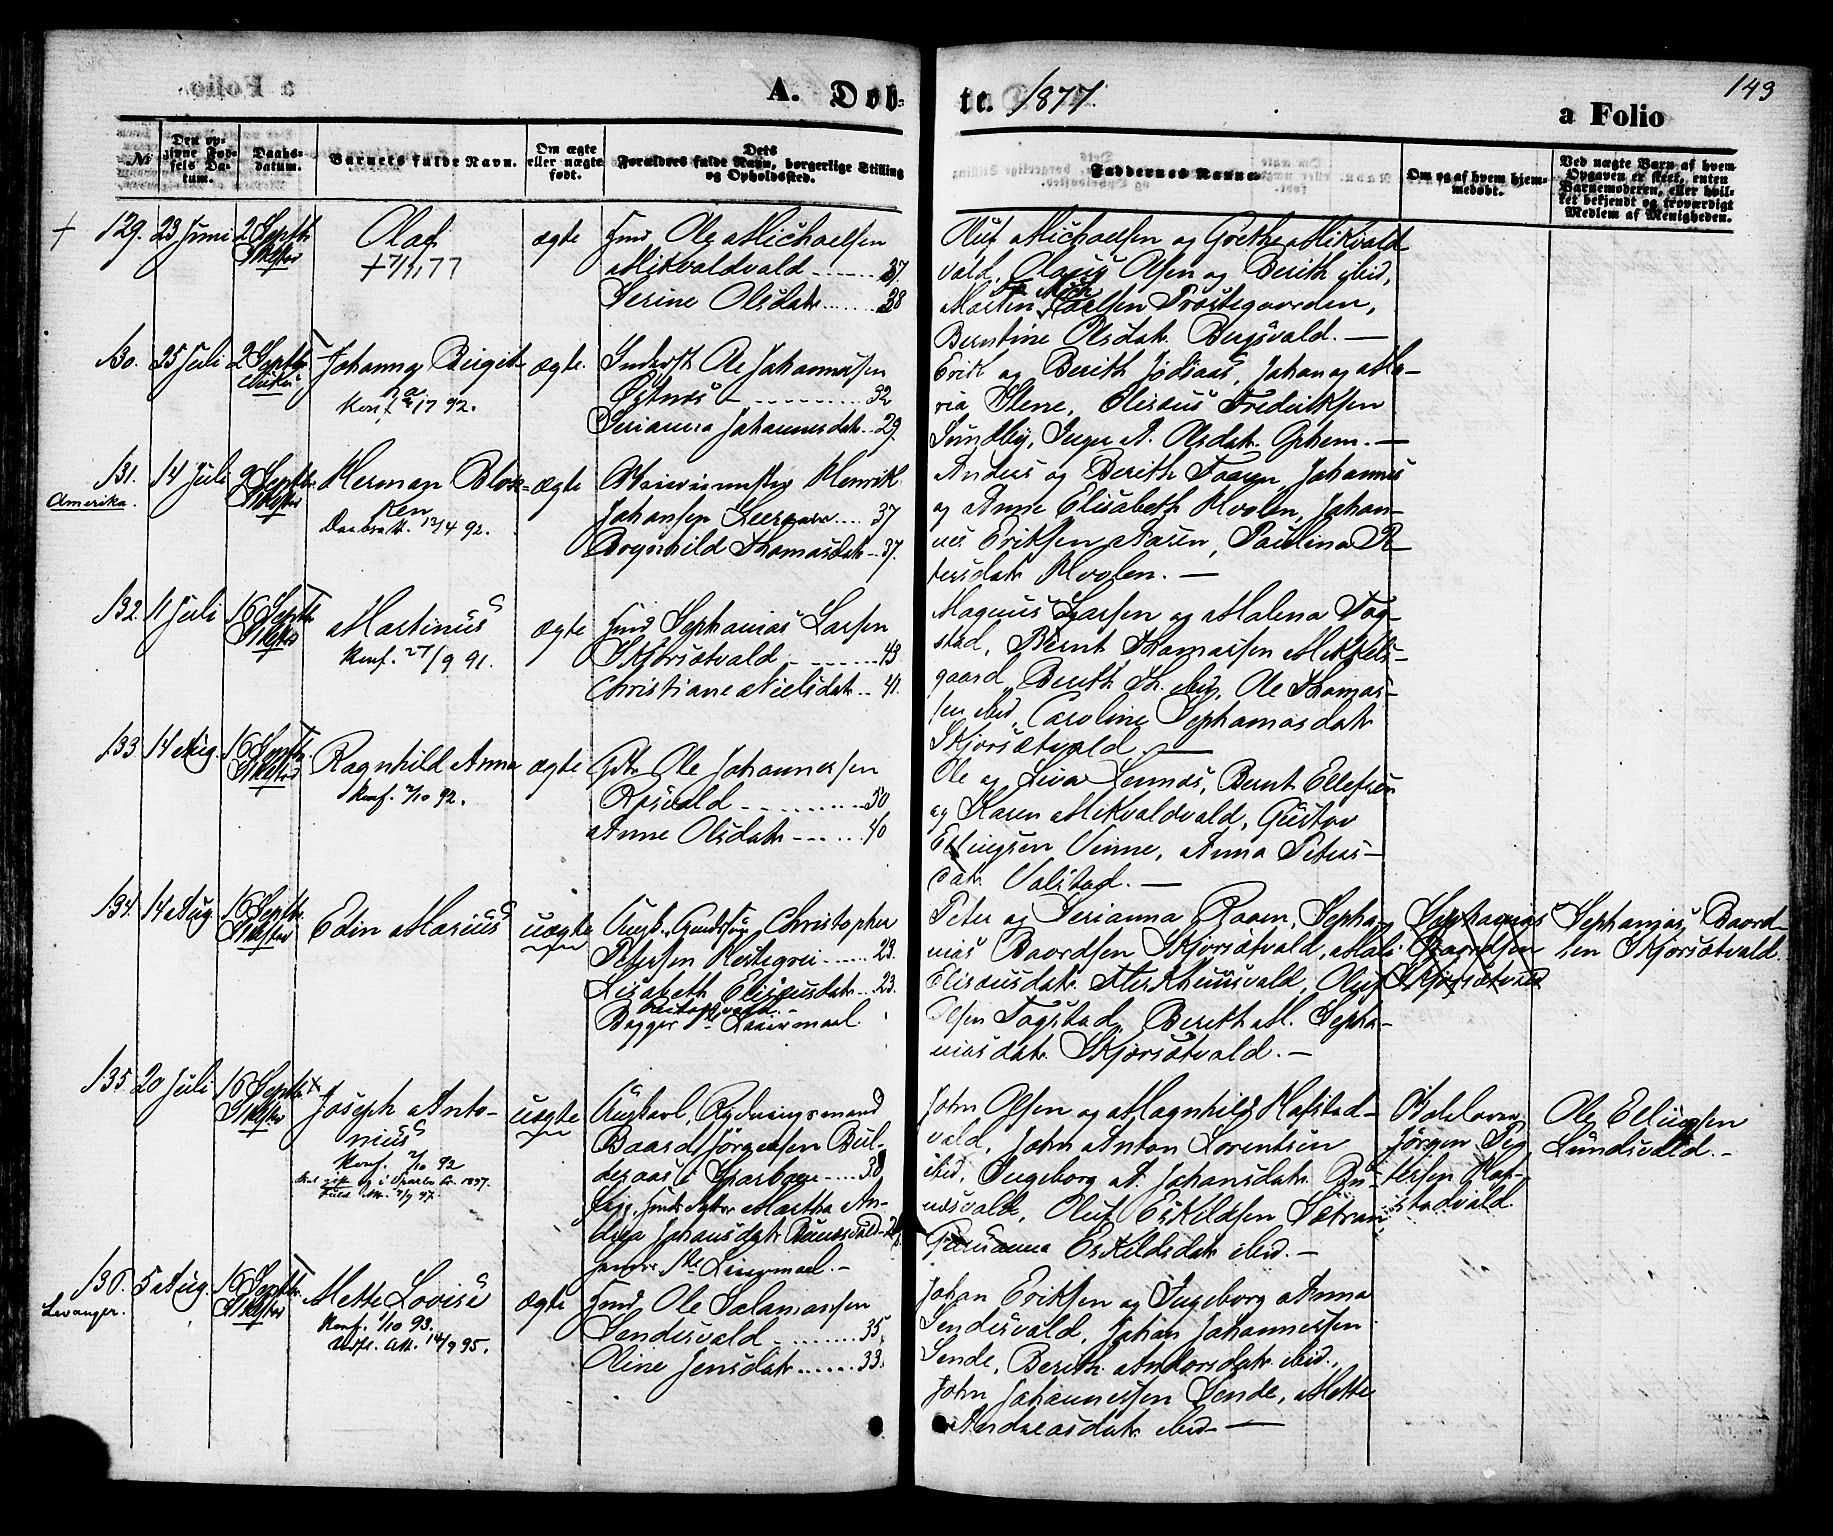 A. Døb-
te. 1877.
a Folio
143
No
Den opgivne Fødsels Datum.
Daabsdatum.
Barnets fulde Navn.
Om ægte eller uægte født.
Dets Forældres fulde Navn, borgerlige Stilling og Opholdssted.
Faddernes Navne.
Om og af hvem hjemmedøbt.
Ved uægte Barn af hvem Opgaven er skeet, enten Barnemoderen, eller hvilket bekjendt og troværdigt Medlem af Menigheden.
+ 129. 23 Juni 2 Septbr.
Olaf
ægte
Hmd Ole Michaelsen
Mikvoldvald 37
Serine Olsdatr 38
Oluf Michaelsen og Grethe Mikvold-
vald, Claus Olsen og Berith ibid,
Martin Præstegaarden,
Berntine Olsdatr Bergsvald. —
130. 25 Juli 2 Septbr
Johanna Birgit-
na
Konf. 92.
ægte.
Inderst Ole Johannessen
Østnes 32
Serianna Johannesdatr 29.
Erik og Berith Johan og Ma-
ria Stene, Eliseus Frederiksen
Sundby, Inger A. Olsdatr Ophem. —
131. 14 Juli 2 Septbr.
Amerika.
Herman Blok-
ken
Daabsatt. 12/4 92.
ægte
Henrik
Johansen 37
Bognhild Thomasdatr 37.
Anders og Berith Faaren, Johannes
og Anne Elisabeth Hvolen, Johan-
nes Eriksen Aasen, Paulina P-
tersdatr Hvolen. —
132. 11 Juli 16 Septbr
Martinus
Konf. 27/9 91.
ægte
Hmd Sephanias Larsen
Skjørsætvald 43
Christiane Nielsdatr 41.
Magnus Larsen og Malena Tog-
stad, Bernt Thomassen Mikkels-
gaard, Berith Th. ibid, Ole Thomas-
sen ibid, Caroline Sephaniasdatr
Skjørsætvald. —
133. 14 Aug. 16 Septbr.
Ragnhild Anna
Konf. 2/10 92.
ægte
Gbr Ole Johannessen
Røsvald 50
Anne Olsdatr 40
Ole og Lina Lennæs, Bernt Ellefsen
og Karen Mikvoldvald, Gustav
Ellingsen Vinne, Anna Peters-
datr Volstad. —
134. 14 Aug 16 Septbr.
Edin Marius
uægte
Ungk., Christopher
Petersen Hestegrei 23.
Lisabeth Eliseusdatr 23.
Begges 1ste Leiermaal.
Peter og Serianna Raaen, Sepha-
nias Baardsen Skjørsætvald, Mali
Eliseusdatr vald, Oluf
Olsen Togstad, Berith M. Sepha-
niasdatr Skjørsætvald. —
Sephanias
Baardsen
Skjørsætvald
Sephanias Baard-
sen Skjørsætvald.
135. 20 Juli 16 Septbr
Joseph Anto-
nius
Konf. 2/10 92
uægte
Ungkarl, Rydningsmand
Baard Jørgensen Bul-
deraas i Sparboen 30
Pige, Martha An-
drea Johansdatr
1ste Leiermaal. —
John Olsen og Magnhild Hofstad-
vald, John Anton Lorentsen
ibid, Ingeborg A. Johansdatr
vald, Oluf Eskildsen Sætran
Eskildsdatr ibid. —
Jørgen Pe-
tersen Hof-
stadvald.
Ole Ellingsen
Lundsvald. —
136. 5 Aug. 16 Septbr.
Levanger.
Mette Lovise
Konf. 1/10 93.
Att. 14/9 95.
ægte
Hmd Ole Salamonsen
Sendesvald 35,
Oline Jensdatr 33.
Johan Eriksen og Ingeborg Anna
Sendesvald, Johan Johannessen
Sende, Berith Andorsdatr ibid.,
John Johannessen Sende, Mette
Andreasdatr ibid —